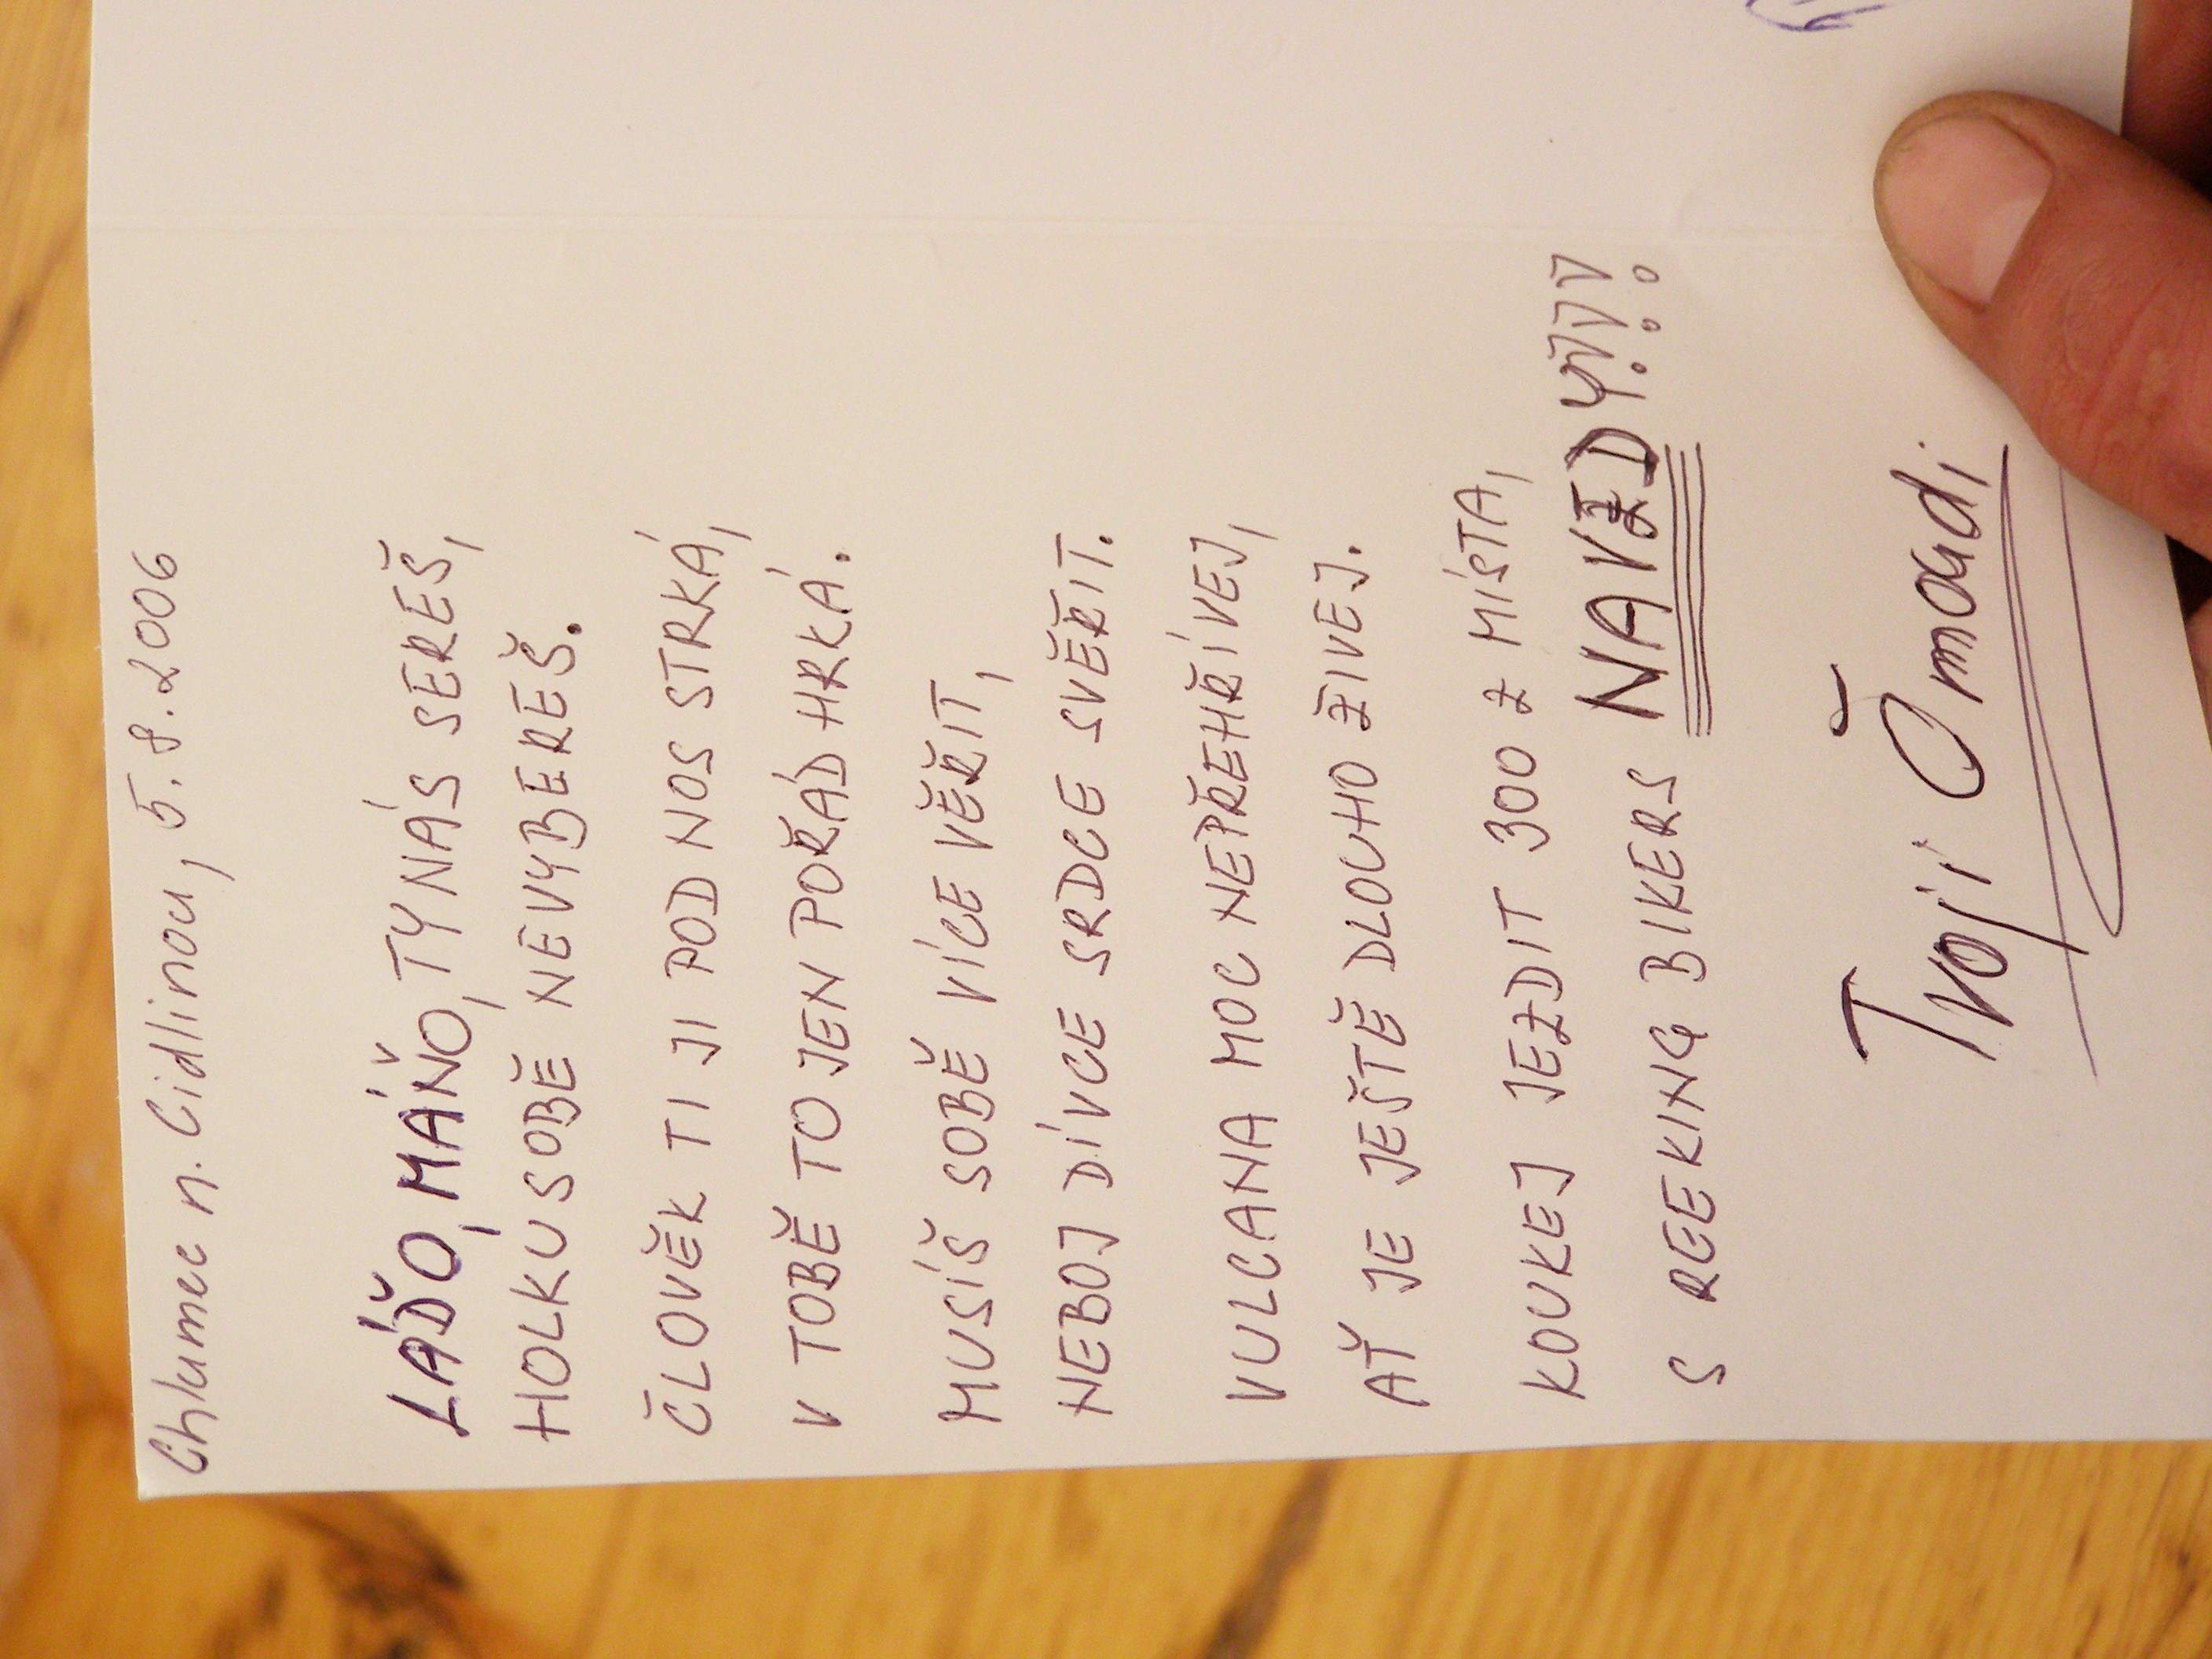 Chlumec n. Cidlinou, 5.8.2006
LÁĎO, MÁŇO, TY NÁS SEREŠ,
HOLKU SOBĚ NEVYBEREŠ.
ČLOVĚK TI JI POD NOS STRKÁ,
V TOBĚ TO JEN POŘÁD HRKÁ.
MUSÍŠ SOBĚ VÍCE VĚŘIT,
NEBOJ DÍVCE SRDCE SVĚŘIT.
VULCANA MOC NEPŘEHŘÍVEJ,
AŤ JE JEŠTĚ DLOUHO ŽIVEJ.
KOUKEJ JEZDIT 300 Z MÍSTA,
S REEKING BIKERS NAVŽDY!!!
Tvoji Čmoudi